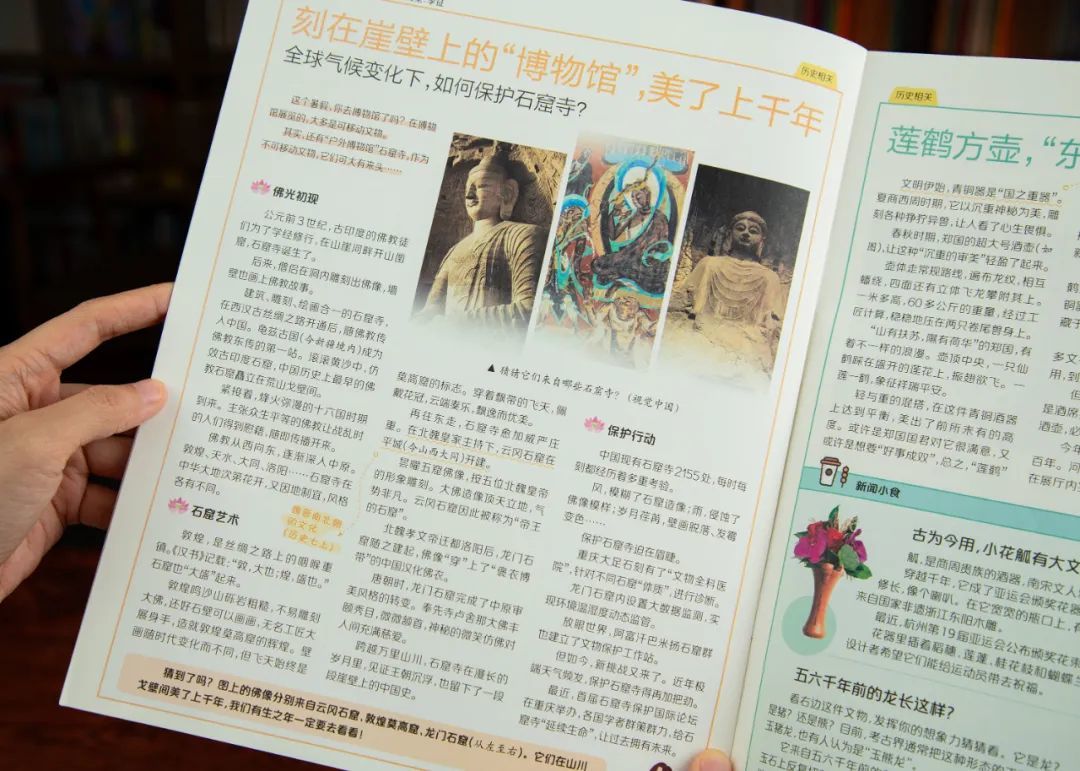 刻在崖壁上的“博物馆”,美了上千年
全球气候变化下,如何保护石窟寺?
历史相关
这个暑假,你去博物馆了吗?在博物
馆展览的,大多是可移动文物。
其实,还有“户外博物馆”石窟寺,作为
不可移动文物,它们可大有来头……
佛光初现
公元前3世纪,古印度的佛教徒
们为了学经修行,在山崖河畔开山凿
窟,石窟寺诞生了。
后来,僧侣在洞内雕刻出佛像,墙
壁也画上佛教故事。
建筑、雕刻、绘画合一的石窟寺,
在西汉古丝绸之路开通后,随佛教传
入中国。龟兹古国(今新疆境内)成为
佛教东传的第一站。滚滚黄沙中,仿
效古印度石窟,中国历史上最早的佛
教石窟矗立在荒山戈壁间。
紧接着,烽火弥漫的十六国时期
到来。主张众生平等的佛教让战乱时
的人们得到慰藉,随即传播开来。
佛教从西向东,逐渐深入中原。
敦煌、天水、大同、洛阳……石窟寺在
中华大地次第花开,又因地制宜,风格
各有不同。
石窟艺术
魏晋南北朝
的文化
(历史七上)
敦煌,是丝绸之路上的咽喉重
镇。《汉书》记载:“敦,大也;煌,盛也。”
石窟也“大盛”起来。
敦煌鸣沙山砾岩粗糙,不易雕刻
大佛,还好石壁可以画画,无名工匠大
展身手,造就敦煌莫高窟的辉煌。壁
画随时代变化而不同,但飞天始终是
▲ 猜猜它们来自哪些石窟寺?(视觉中国)
莫高窟的标志。穿着飘带的飞天,佩
戴花冠,云端奏乐,飘逸而优美。
再往东走,石窟寺愈加威严庄
重。在北魏皇家主持下,云冈石窟在
平城(今山西大同)开建。
昙曜五窟佛像,按五位北魏皇帝
的形象雕刻。大佛造像顶天立地,气
势非凡。云冈石窟因此被称为“帝王
的石窟”。
北魏孝文帝迁都洛阳后,龙门石
窟随之建起,佛像“穿”上了“褒衣博
带”的中国汉化佛衣。
唐朝时,龙门石窟完成了中原审
美风格的转变。奉先寺卢舍那大佛丰
颐秀目,微微颔首,神秘的微笑仿佛对
人间充满慈爱。
跨越万里山川,石窟寺在漫长的
岁月里,见证王朝沉浮,也留下了一段
段崖壁上的中国史。
保护行动
中国现有石窟寺2155处,每时每
刻都经历着多重考验。
风,模糊了石窟造像;雨,侵蚀了
佛像模样;岁月荏苒,壁画脱落、发霉
变色……
保护石窟寺迫在眉睫。
重庆大足石刻有了“文物全科医
院”,针对不同石窟“体质”,进行诊断。
龙门石窟内设置大数据监测,实
现环境温湿度动态监管。
放眼世界,阿富汗巴米扬石窟群
也建立了文物保护工作站。
但如今,新挑战又来了。近年极
端天气频发,保护石窟寺得再加把劲。
最近,首届石窟寺保护国际论坛
在重庆举办,各国学者群策群力,给石
窟寺“延续生命”,让过去拥有未来。
猜到了吗?图上的佛像分别来自云冈石窟,敦煌莫高窟,龙门石窟(从左至右)。它们在山川
戈壁间美了上千年,我们有生之年一定要去看看!
历史相关
莲鹤方壶,“东
文明伊始,青铜器是“国之重器”。
夏商西周时期,它以沉重神秘为美,雕
刻各种狰狞异兽,让人看了心生畏惧。
春秋时期,郑国的超大号酒壶(如
图),让这种“沉重的审美”轻盈了起来。
壶体走常规路线,遍布龙纹,相互
蟠绕,四面还有立体飞龙攀附其上。
一米多高,60多公斤的重量,经过工
匠计算,稳稳地压在两只卷尾兽身上。
“山有扶苏,隰有荷华”的郑国,有
着不一样的浪漫。壶顶中央,一只仙
鹤踩在盛开的莲花上,振翅欲飞。一
莲一鹤,象征祥瑞平安。
轻与重的混搭,在这件青铜酒器
上达到平衡,美出了前所未有的高
度。或许是郑国国君对它很满意,又
或许是想要“好事成双”,总之,“莲鹤
新闻小食
古为今用,小花觚有大文
觚,是商周贵族的酒器,南宋文人
穿越千年,它成了亚运会颁奖花器
修长,像个喇叭。在它宽宽的瓶口上,有
来自国家非遗浙江东阳木雕。
最近,杭州第19届亚运会公布颁奖花束
花器里插着稻穗、莲蓬、桂花枝和蝴蝶兰
设计者希望它们能给运动员带去祝福。
五六千年前的龙长这样?
看右边这件文物,发挥你的想象力猜猜看。它是龙?
是猪?还是熊?目前,考古界通常把这种形态的
玉猪龙,也有人认为是“玉熊龙”。